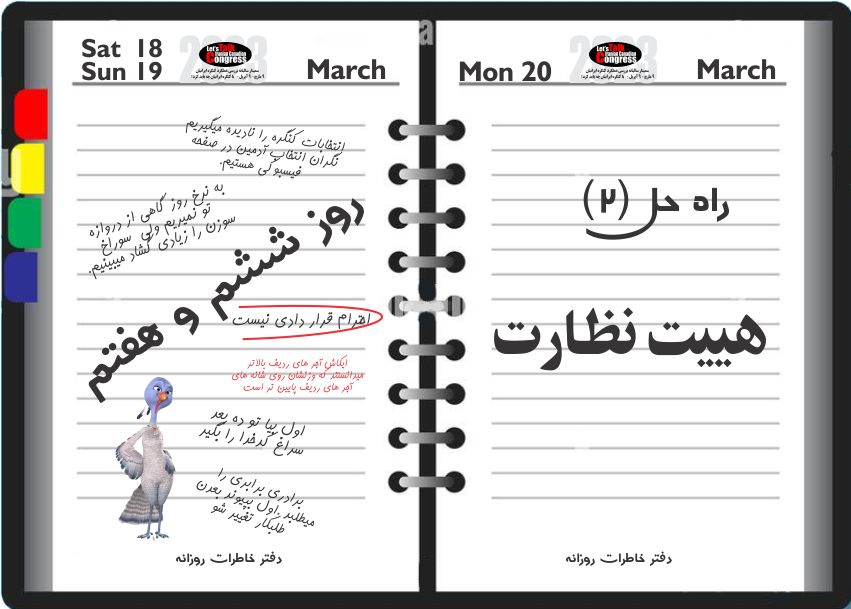 Sat 18
Sun 19
March
2023
Let's Talk
Iranian Canadian
Congress
انتخابات کنگره را نادیده میگیریم
نگران انتخاب آدمین در صفحه
فیسبوکی هستیم.
به نرخ روز گاهی از دروازه
تو نمیریم ولی سوراخ
سوزن را زیادی گشاد میبینیم.
روز ششم و هفتم
احترام قرار دادی نیست
ایکاش آجر های ردیف بالاتر
میدانستند که وزنشان روی شانه های
آجر های ردیف پایین تر است
اول بیا تو ده بعد
سراغ کدخدا را بگیر
برادری برابری را
میطلبد .اول بپیوند بعدن
طلبکار تغییر شو
دفتر خاطرات روزانه
Mon 20
March
2023
Let's Talk
Iranian Canadian
Congress
راه حل (۲)
هییت نظارت
دفتر خاطرات روزانه